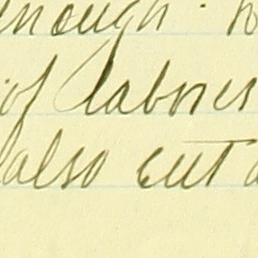 enough.
of labores
also cut